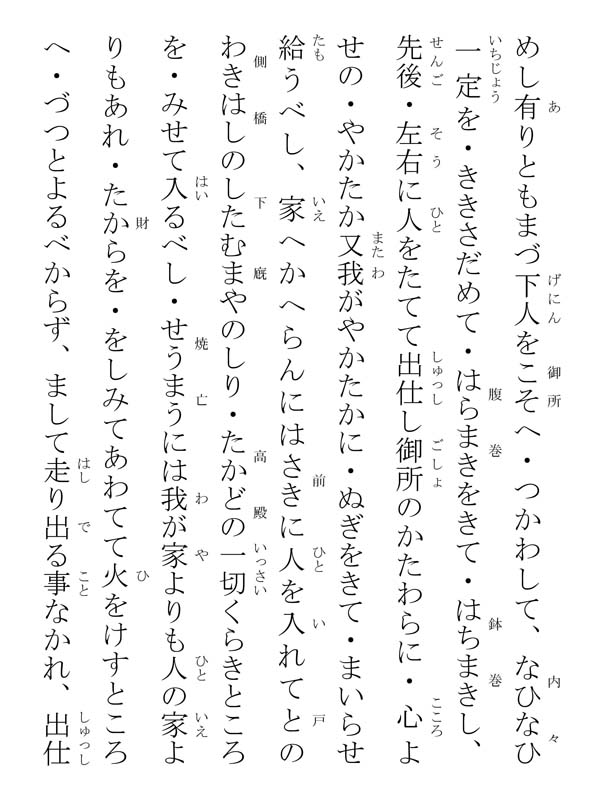 めし有りともまづ下人をこそへ・つかわして、なひなひ
一定を・ききさだめて・はらまきをきて・はちまきし、
先後・左右に人をたてて出仕し御所のかたわらに・心よ
せの・やかたか又我がやかたかに・ぬぎをきて・まいらせ
給うべし、家へかへらんにはさきに人を入れてとの
わきはしのしたむまやのしり・たかどの一切くらきところ
を・みせて入るべし・せうまうには我が家よりも人の家よ
りもあれ・たからを・をしみてあわてて火をけすところ
へ・づつとよるべからず、まして走り出る事なかれ、出仕